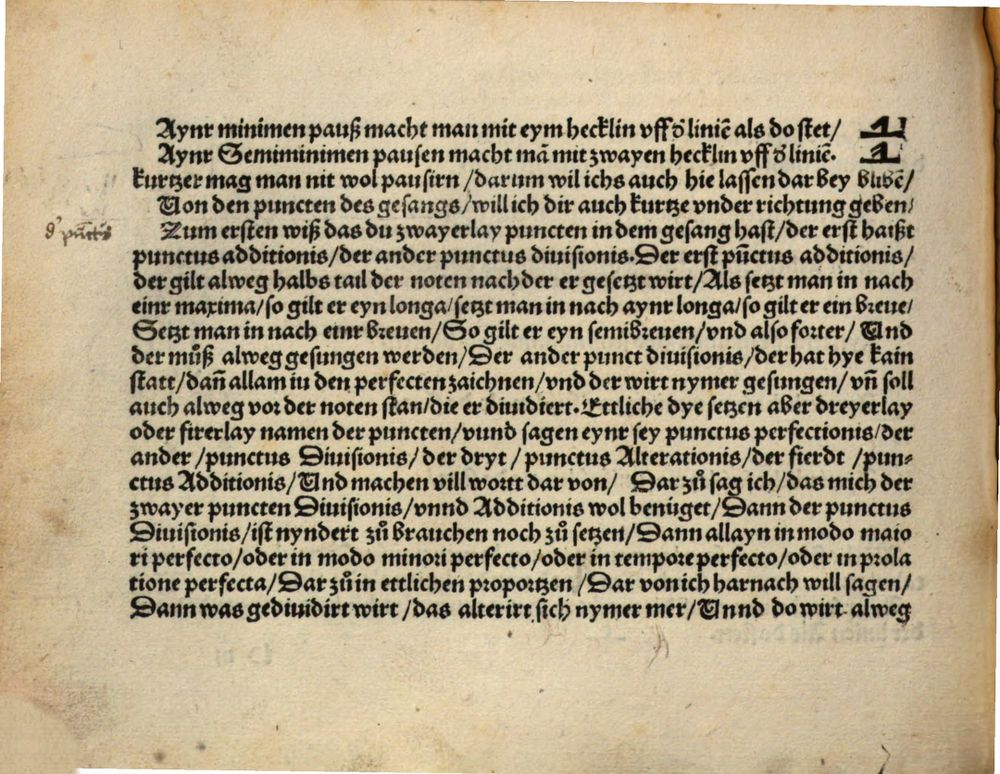 Aynr minimen pauß macht man mit eym hecklin uff d̕ liniē als do stet/
Aynr Semiminimen pausen macht mā mit zwayen hecklin uff d̕ liniē.
kurtzer mag man nit wol pausirn /darum wil ichs auch hie lassen dar bey blibē/
Von den puncten des gesangs/will ich dir auch kurtze vnder richtung geben/
Zum ersten wiß das du zwayerlay puncten in dem gesang hast/der erst haißt
punctus additionis/der ander punctus diuisionis.Der erst pūctus additionis/
der gilt alweg halbs tail der noten nach der er gesetzt wirt/Als setzt man in nach
einr maxima/so gilt er eyn longa/setzt man in nach aynr longa/so gilt er ein breue/
Setzt man in nach einr breuen/So gilt er eyn semibreuen/vnd also forter/ Vnd
der můß alweg gesungen werden/Der ander punct diuisionis/der hat hye kain
statt/dañ allam iu den perfecten zaichnen/vnd der wirt nymer gesungen/ vñ soll
auch alweg vor der noten stan/die er diuidiert.Ettliche dye setzen aber dreyerlay
oder firerlay namen der puncten/vund sagen eynr sey punctus perfectionis/der
ander /punctus Diuisionis/ der dryt / punctus Alterationis/der fierdt /pun-
ctus Additionis/Vnd machen vill wortt dar von/ Dar zů sag ich/das mich der
zwayer puncten Diuisionis/vnnd Additionis wol benüget/Dann der punctus
Diuisionis/ist nyndert zů brauchen noch zů setzen/Dann allayn in modo maio
ri perfecto/oder in modo minori perfecto/oder in tempore perfecto/oder in prola
tione perfecta/Dar zů in ettlichen proportzen /Dar von ich harnach will sagen/
Dann was gediuidirt wirt /das alterirt sich nymer mer/Vnnd do wirt alweg